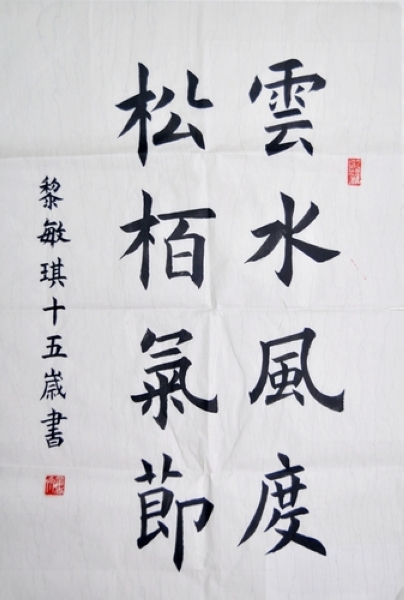 雲水風度
松栢氣節
黎敏琪十五歲書